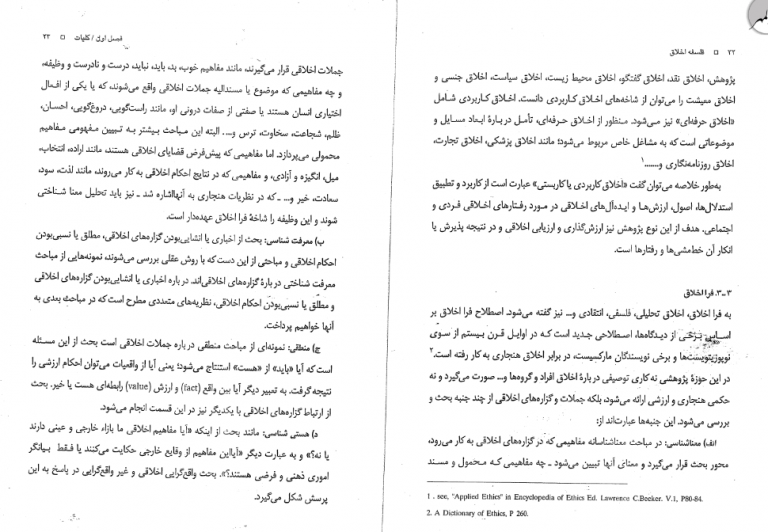 ۲۲ □ فلسفه اخلاق
پژوهش، اخلاق نقد، اخلاق گفتگو، اخلاق محیط زیست، اخلاق سیاست، اخلاق جنسی و
اخلاق معیشت را می‌توان از شاخه‌های اخلاق کاربردی دانست. اخلاق کاربردی شامل
«اخلاق حرفه‌ای» نیز می‌شود. منظور از اخلاق حرفه‌ای، تأمل دربارهٔ ابعاد مسایل و
موضوعاتی است که به مشاغل خاص مربوط می‌شود؛ مانند اخلاق پزشکی، اخلاق تجارت،
اخلاق روزنامه‌نگاری و.......۱
به‌طور خلاصه می‌توان گفت «اخلاق کاربردی یا کاربستی» عبارت است از کاربرد و تطبیق
استدلال‌ها، اصول، ارزش‌ها و ایده‌آل‌های اخلاقی در مورد رفتارهای اخلاقی فردی و
اجتماعی. هدف از این نوع پژوهش نیز ارزش‌گذاری و ارزیابی اخلاقی و در نتیجه پذیرش یا
انکار آن خط‌مشی‌ها و رفتارها است.
۳-۳. فرا اخلاق
به فرا اخلاق، اخلاق تحلیلی، فلسفی، انتقادی و... نیز گفته می‌شود. اصطلاح فرا اخلاق بر
اساس برخی از دیدگاه‌ها، اصطلاحی جدید است که در اوایل قرن بیستم از سوی
نوپوزیتویست‌ها و برخی نویسندگان مارکسیست، در برابر اخلاق هنجاری به کار رفته است.۲
در این حوزهٔ پژوهشی نه کاری توصیفی دربارهٔ اخلاق افراد و گروه‌ها و... صورت می‌گیرد و نه
حکمی هنجاری و ارزشی ارائه می‌شود، بلکه جملات و گزاره‌های اخلاقی از چند جنبه بحث و
بررسی می‌شود. این جنبه‌ها عبارت‌اند از:
الف) معناشناسی: در مباحث معناشناسانه مفاهیمی که در گزاره‌های اخلاقی به کار می‌رود،
محور بحث قرار می‌گیرد و معنای آنها تبیین می‌شود ـ چه مفاهیمی که محمول و مسند
1 . see, "Applied Ethics" in Encyclopedia of Ethics Ed. Lawrence C.Becker. V.1, P80-84.
2. A Dictionary of Ethics, P 260.
فصل اول / کلیات □ ۲۳
جملات اخلاقی قرار می‌گیرند، مانند مفاهیم خوب، بد، باید، نباید، درست و نادرست و وظیفه،
و چه مفاهیمی که موضوع یا مسندالیه جملات اخلاقی واقع می‌شوند، که یا یکی از افعال
اختیاری انسان هستند یا صفتی از صفات درونی او، مانند راست‌گویی، دروغ‌گویی، احسان،
ظلم، شجاعت، سخاوت، ترس و... . البته این مباحث بیشتر به تبیین مفهومی مفاهیم
محمولی می‌پردازد. اما مفاهیمی که پیش‌فرض قضایای اخلاقی هستند، مانند اراده، انتخاب،
میل، انگیزه و آزادی، و مفاهیمی که در نتایج احکام اخلاقی به کار می‌روند، مانند لذت، سود،
سعادت، خیر و... ـ که در نظریات هنجاری به آنها اشاره شد ـ نیز باید تحلیل معنا شناختی
شوند و این وظیفه را شاخهٔ فرا اخلاق عهده‌دار است.
ب) معرفت شناسی: بحث از اخباری یا انشایی‌بودن گزاره‌های اخلاقی، مطلق یا نسبی‌بودن
احکام اخلاقی و مباحثی از این دست که با روش عقلی بررسی می‌شوند، نمونه‌هایی از مباحث
معرفت شناختی در بارهٔ گزاره‌های اخلاقی‌اند. در باره اخباری یا انشایی‌بودن گزاره‌های اخلاقی
و مطلق یا نسبی‌بودن احکام اخلاقی، نظریه‌های متعددی مطرح است که در مباحث بعدی به
آنها خواهیم پرداخت.
ج) منطقی: نمونه‌ای از مباحث منطقی در باره جملات اخلاقی است بحث از این مسئله
است که آیا «باید» از «هست» استنتاج می‌شود؛ یعنی آیا از واقعیات می‌توان احکام ارزشی را
نتیجه گرفت. به تعبیر دیگر آیا بین واقع (fact) و ارزش (value) رابطه‌ای هست یا خیر. بحث
از ارتباط گزاره‌های اخلاقی با یکدیگر نیز در این قسمت انجام می‌شود.
د) هستی شناسی: مانند بحث از اینکه «آیا مفاهیم اخلاقی ما بازاء خارجی و عینی دارند
یا نه؟» و به عبارت دیگر «آیا این مفاهیم از وقایع خارجی حکایت می‌کنند یا فقط بیانگر
اموری ذهنی و فرضی هستند؟». بحث واقع‌گرایی اخلاقی و غیر واقع‌گرایی در پاسخ به این
پرسش شکل می‌گیرد.